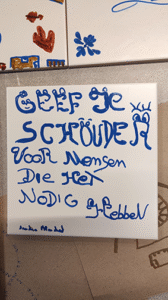 GEEF JE
SCHOUDER
VOOR Mensen
DIE HET
NODIG HebbeN